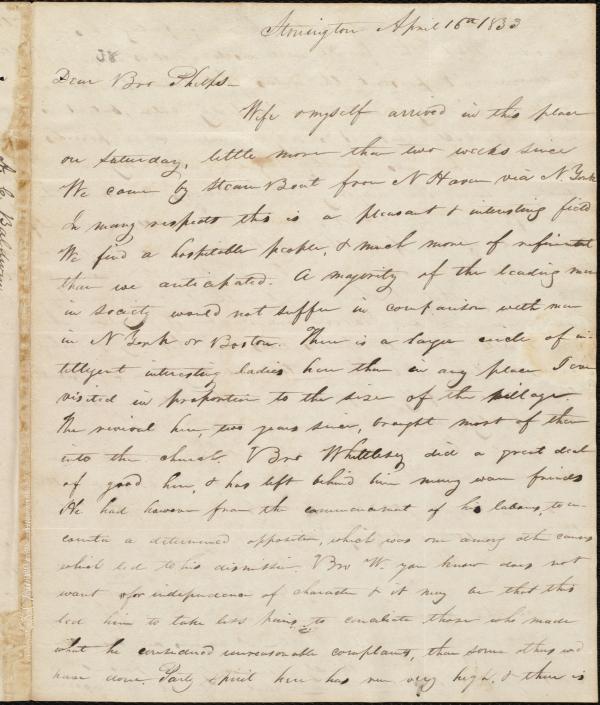 Stonington April 16th 1833
Dear Bro Phelps—
Wife & myself arrived in this place
on Saturday, little more than two weeks since
We came by Steam Boat from N Haven via N. York
In many respects this is a pleasant & interesting field
We find a hospitable people, & much more of refinement
than we anticipated. A majority of the leading men
in society would not suffer in comparison with men
in N York or Boston. There is a larger circle of in-
telligent interesting ladies here than in any place I ever
visited in proportion to the size of the village.
The revival here, two years since, brought most of them
into the church. Bro Whittlesey did a great deal
of good here, & has left behind him many warm friends
He had however from the commencement of his labours, to en-
counter a determined opposition, which was one among other causes
which led to his dismission. Bro W. you know does not
want for independence of character & it may be that this
led him to take less pains to conciliate those who made
what he considered unreasonable complaints, than some others wd
have done. Party spirit here has run very high, & there is
A C Baldwin